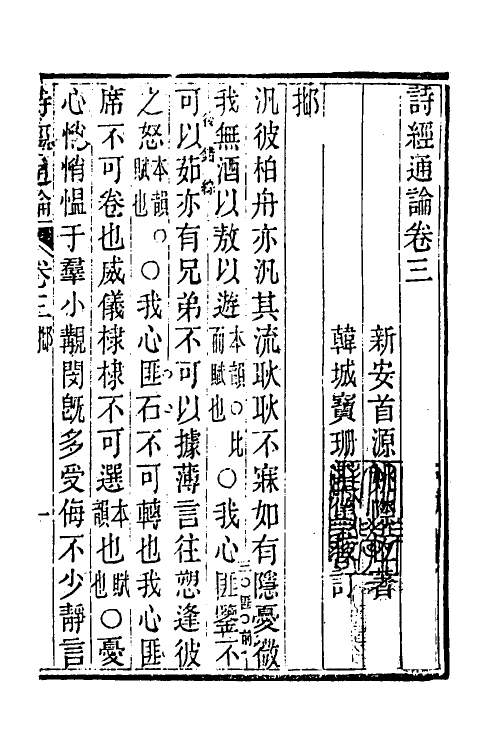 詩經通論卷三
新安首源姚際恆著
韓城寶珊訂
邶
汎彼柏舟亦汎其流耿耿不寐如有隱憂微
我無酒以敖以遊本韻○比而賦也○我心匪鑒不
可以茹亦有兄弟不可以據薄言往愬逢彼
之怒本韻○賦也○我心匪石不可轉也我心匪
席不可卷也威儀棣棣不可選也本韻○賦也○憂
心悄悄慍于羣小覯閔旣多受侮不少靜言
詩經通論 卷三邶 一